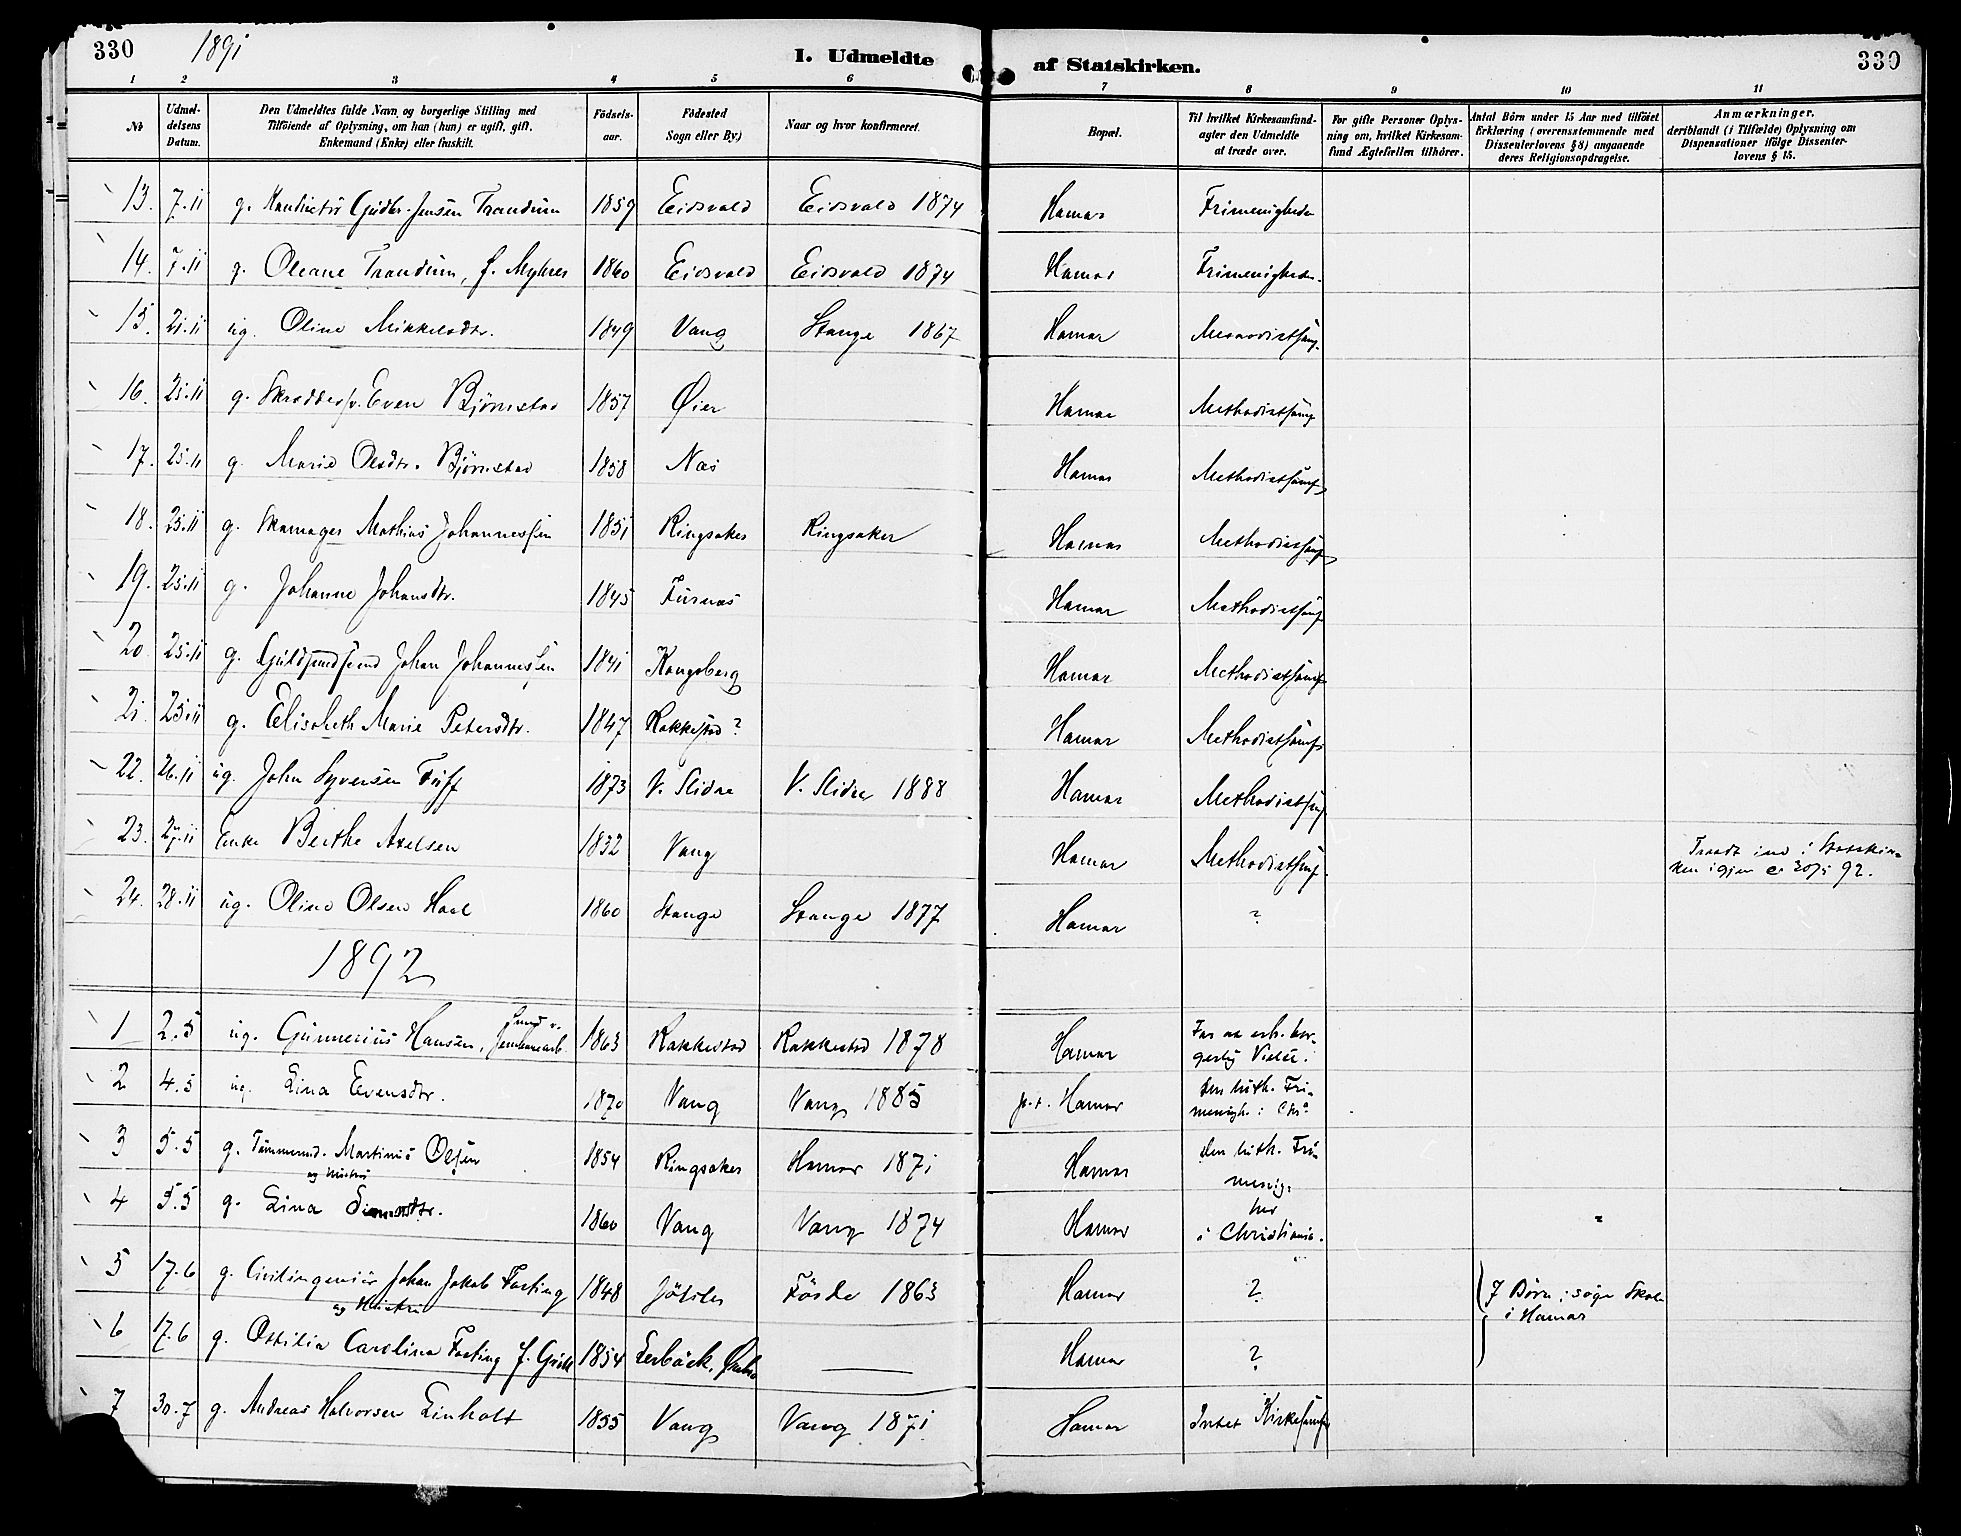 330 1891 I. Udmeldte af Statskirken. 330
1 2 3 4 5 6 7 8 9 10 11
No Udmeldelsens Datum. Den Udmeldtes fulde Navn og borgerlige Stilling med Tilföiende af Oplysning, om han (hun) er ugift, gift, Enkemand (Enke) eller fraskilt. Födselsaar. Födested Sogn eller By) Naar og hvor konfirmeret. Bopæl. Til hvilket Kirkesamfund agter den Udmeldte at træde over. For gifte Personer Oplysning om, hvilket Kirkesamfund Ægtefællen tilhörer. Antal Börn under 15 Aar med tilföiet Erklæring (overensstemmende med Dissenterlovens § 8) angaaende deres Religionsopdragelse. Anmærkninger, deriblandt (i Tilfælde) Oplysning om Dispensationer ifölge Dissenterlovens § 15.
13. 7.11 g. Gudbr. Jensen Trandum 1859 Eidsvold Eidsvold 1874 Hamar Frimenigheden
14. 7.11 g. Oleane Trandum, f. Myhrer 1860 Eidsvold Eidsvold 1874 Hamar Frimenigheden.
15. 21.11 ug. Oline Mikkelsdtr. 1849 Vang Stange 1867 Hamar Methodistsamf.
16. 25.11 g. Skrædersv. Even Björnstad 1857 Øier Hamar Methodistsamf
17. 25.11 g. Marie Olsdtr. Björnstad 1858 Næs Hamar Methodistsamf
18. 25.11 g. Skomager Mathias Johannessen 1851 Ringsaker Ringsaker Hamar Methodistsamf
19. 25.11 g. Johanne Johansdtr. 1845 Furnæs Hamar Methodistsamf
20 25.11 g. Guldsmedsvend Johan Johannessen 1841 Kongsberg Hamar Methodistsamf
21. 25.11 g. Elisabeth Marie Petersdtr. 1847 Rakkestad? Hamar Methodistsamf.
22. 26.11 ug. John Syversen Tuff 1873 V. Slidre V. Slidre 1888 Hamar Methodistsamf
23. 27.11 Enke Berthe Axelsen 1832 Vang Hamar Methodistsamf. Traadt ind i Statskirken igjen 92.
24. 28.11 ug. Oline Olsen Hoel 1860 Stange Stange 1877 Hamar ?
1892
1 2.5 ug. Gunnerius Hansen, Jernbanearb. 1863 Rakkestad Rakkestad 1878 Hamar For at erh. borgerlig Vielse.
2 4.5 ug. Lina Evensdtr. 1870 Vang Vang 1885 p.t. Hamar den luth. Frimenigh. i Chr.a
3 5.5 g. Tømmermd. Martinus Olsen 1854 Ringsaker Hamar 1871 Hamar den luth. Frimenig-
og Hustru
4 5.5 g. Lina Simensdtr. 1860 Vang Vang 1874 Hamar hed i Christiania.
5 17.6 g. Civilingeniør Johan Jakob Fasting 1848 Jölster Förde 1863 Hamar ? 7 Børn; søge Skole i Hamar
og Hustru
6 17.6 g. Ottilia Carolina Fasting f. 1854 Lerbäck, Hamar ?
7 30.7 g. Andreas Halvorsen Linholt 1855 Vang Vang 1871 Hamar Intet Kirkesamf.